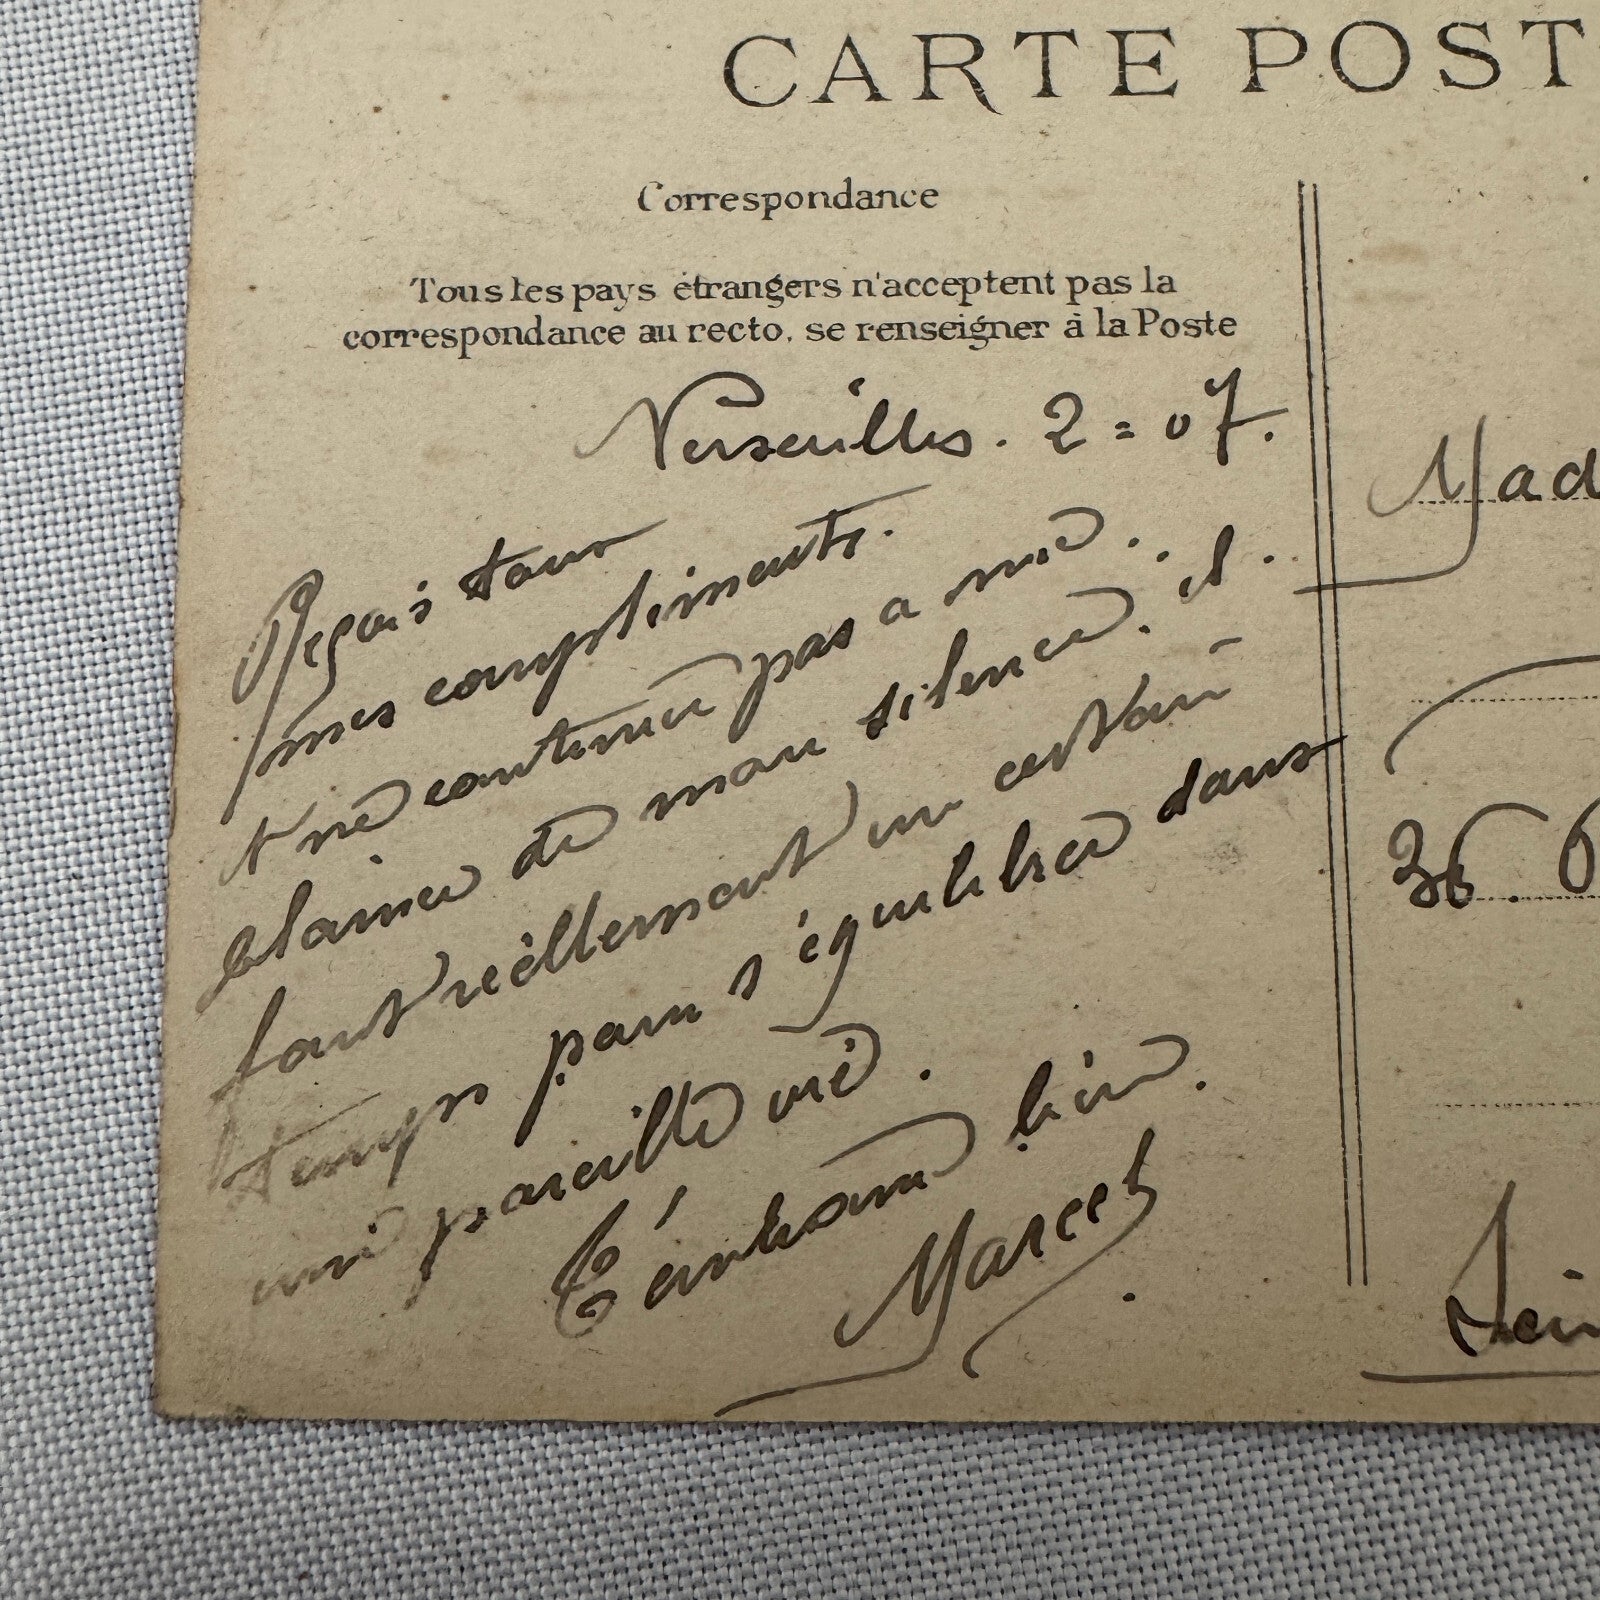 CARTE POST
Correspondance
Tous les pays étrangers n'acceptent pas la
correspondance au recto, se renseigner à la Poste
Versailles. 2 = 07.
Reçois tous
mes compliments.
ne continue pas a me
plaindre de mon silence. il
faut réellement un certain
temps pour s'équilibrer dans
une pareille vie.
T'embrasse bien.
Marcel
Mad
36. 
Sein